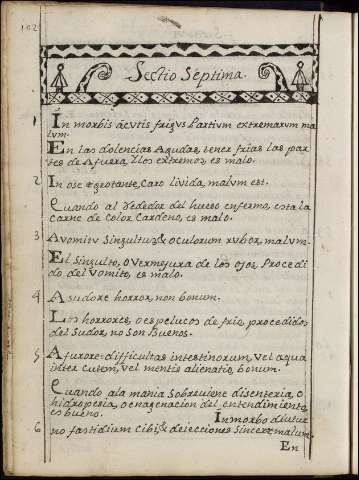 102
Sectio Septima.
1 In morbis acutis frigus Partium extremarum ma
lum.
En las dolencias Agudas, tener frias las par
tes de Afuera, Y los extremos, es malo.
2 In osc ægrotante, Caro livida, malum est.
Quando al Rededor del hueso enfermo, esta la
carne de Color Cardeno, es malo.
3 A vomitu Singultus, & oculorum rubor, malum.
El Singulto, o Vermejura de los ojos, Procedi
do, del Vomito, es malo.
4 A sudore horror, non bonum.
Los horrores, o espelucos de frio, procedidos
del Sudor, no Son Buenos.
5 A furore difficultas intestinorum, Vel aqua
inter cutem, Vel mentis alienatio, bonum.
Quando, a la mania Sobreviene disenteria, o
hidropesia, o enagenacion del entendimiento,
es bueno. In morbo diutur
6 no fastidium Cibi, & deiecciones Sinceræ, malum.
En